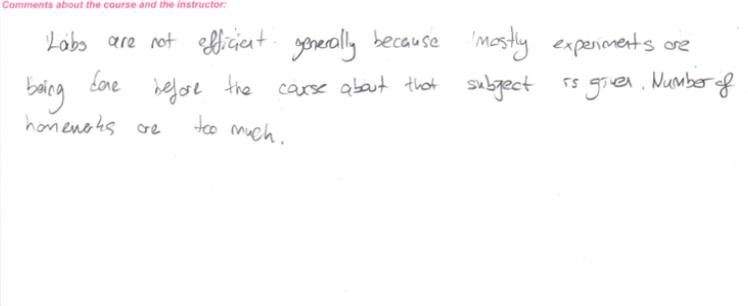 Comments about the course and the instructor:
Labs are not efficient generally because mostly experiments are
being done before the course about that subject is given. Number of
homeworks are too much.